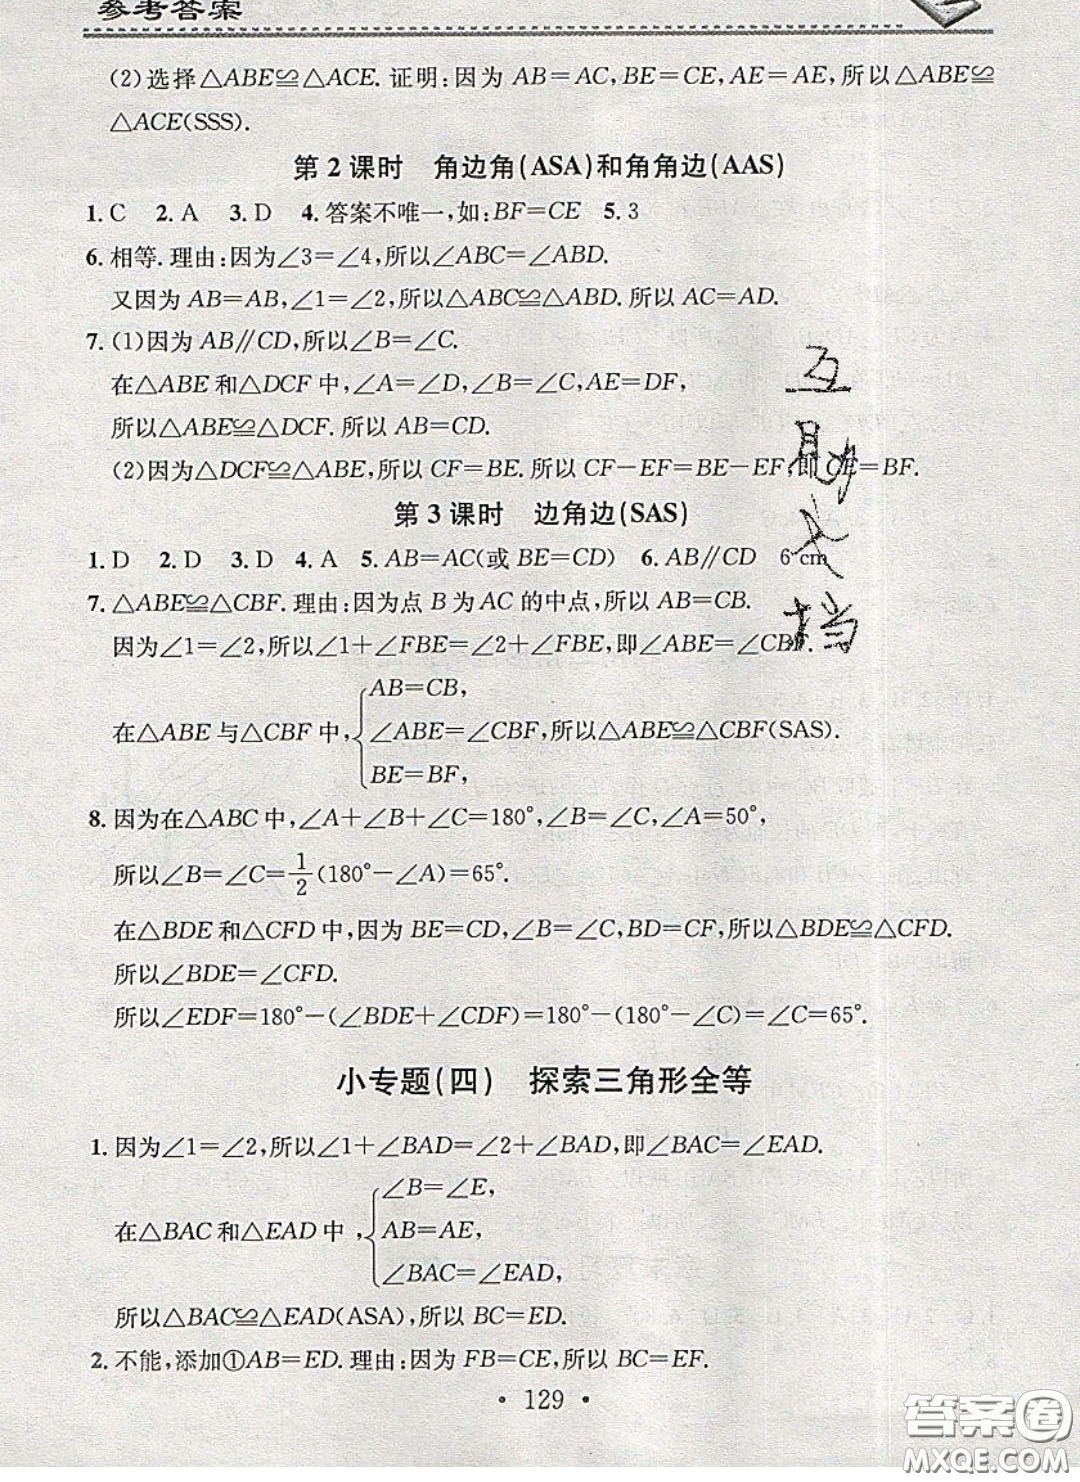 参考答案
(2)选择△ABE≌△ACE.证明:因为 AB=AC,BE=CE,AE=AE,所以△ABE≌
△ACE(SSS).
第 2 课时　角边角(ASA)和角角边(AAS)
1. C　2. A　3. D　4. 答案不唯一,如:BF=CE　5. 3
6. 相等.理由:因为∠3=∠4,所以∠ABC=∠ABD.
又因为 AB=AB,∠1=∠2,所以△ABC≌△ABD.所以 AC=AD.
7. (1)因为 AB∥CD,所以∠B=∠C.
在△ABE 和△DCF 中,∠A=∠D,∠B=∠C,AE=DF,
所以△ABE≌△DCF.所以 AB=CD.
(2)因为△DCF≌△ABE,所以 CF=BE.所以 CF−EF=BE−EF,即 CE=BF.
第 3 课时　边角边(SAS)
1. D　2. D　3. D　4. A　5. AB=AC(或 BE=CD)　6. AB∥CD　6 cm
7. △ABE≌△CBF.理由:因为点 B 为 AC 的中点,所以 AB=CB.
因为∠1=∠2,所以∠1+∠FBE=∠2+∠FBE,即∠ABE=∠CBF.
AB=CB,
在△ABE 与△CBF 中,{∠ABE=∠CBF,所以△ABE≌△CBF(SAS).
BE=BF,
8. 因为在△ABC 中,∠A+∠B+∠C=180°,∠B=∠C,∠A=50°,
所以∠B=∠C=1/2(180°−∠A)=65°.
在△BDE 和△CFD 中,因为 BE=CD,∠B=∠C,BD=CF,所以△BDE≌△CFD.
所以∠BDE=∠CFD.
所以∠EDF=180°−(∠BDE+∠CDF)=180°−(180°−∠C)=∠C=65°.
小专题(四)　探索三角形全等
1. 因为∠1=∠2,所以∠1+∠BAD=∠2+∠BAD,即∠BAC=∠EAD.
∠B=∠E,
在△BAC 和△EAD 中,{AB=AE,
∠BAC=∠EAD,
所以△BAC≌△EAD(ASA),所以 BC=ED.
2. 不能,添加①AB=ED.理由:因为 FB=CE,所以 BC=EF.
· 129 ·
互
助
文
档
答案圈
MXQE.COM